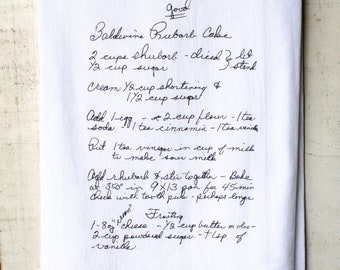 good
Baldwins Rhubarb Cake
2 cups rhubarb - diced } let
1/2 cup sugar } stand
Cream 1/2 cup shortening &
1 1/2 cup sugar
Add 1 egg - 2 cup flour - 1 tea
soda 1 tea cinnamon - 1 tea vanilla
Put 1 tea vinegar in cup of milk
to make sour milk
Add rhubarb & stir together - Bake
at 350° in 9 X 13 pan for 45 min
check with tooth pick - perhaps longer
Frosting
1 - 8oz cream cheese - 1/2 cup butter or oleo -
2 cup powdered sugar - 1 tsp of
vanilla